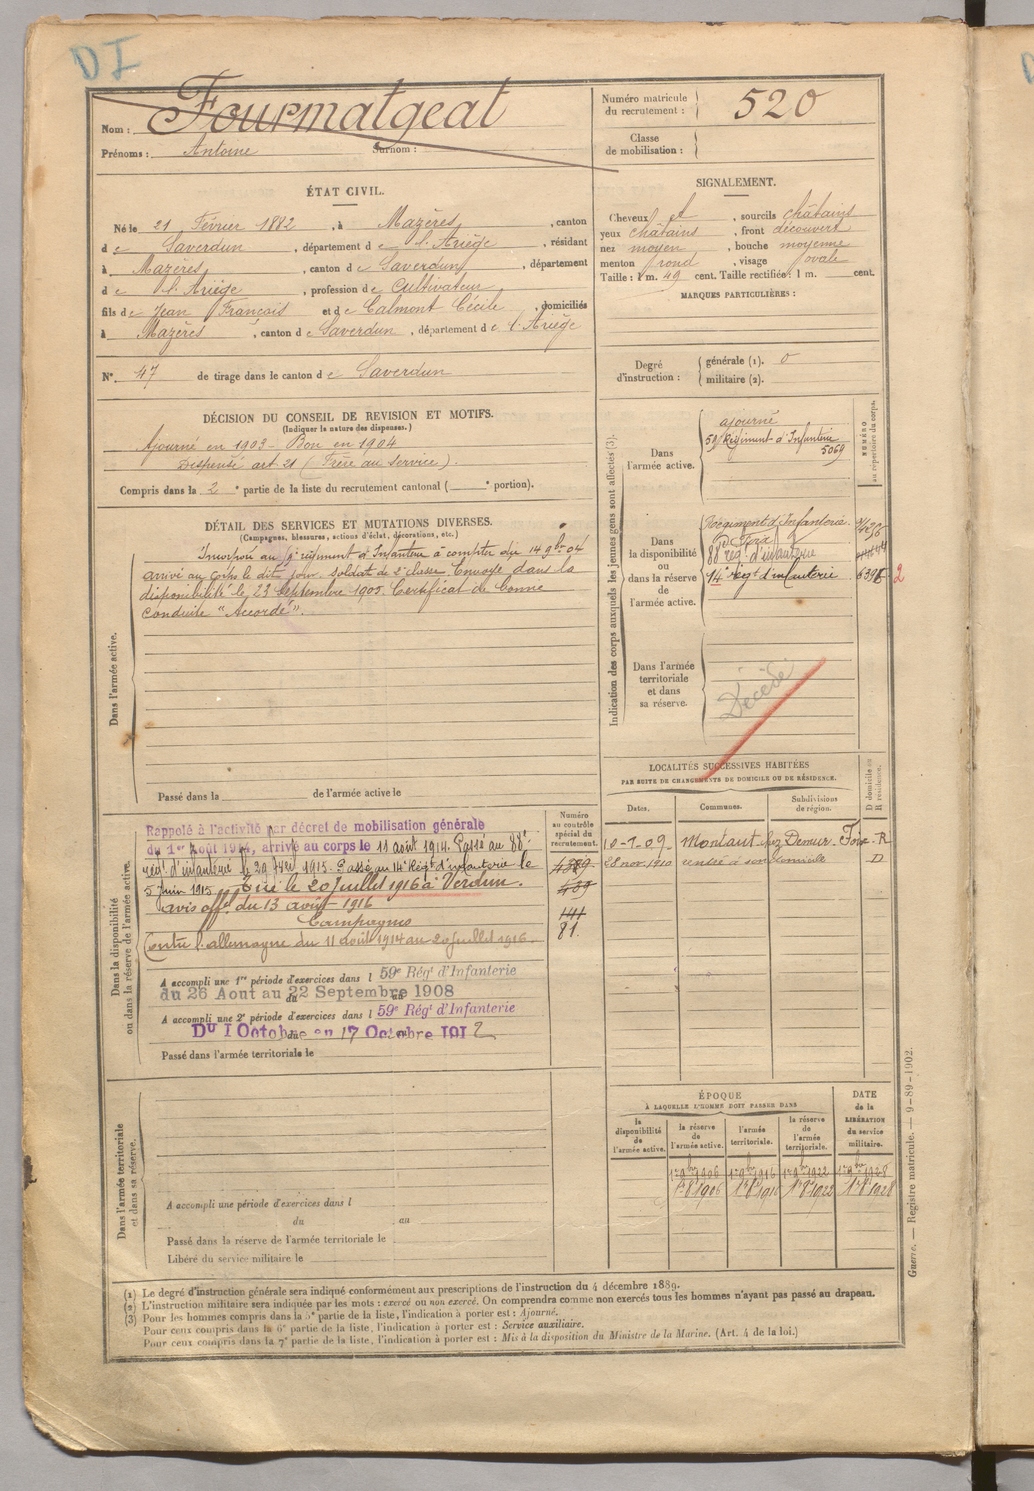 DI
Nom : Fourmatgeat
Prénoms : Antoine Surnom :
Numéro matricule du recrutement : 520
Classe de mobilisation :
ÉTAT CIVIL.
Né le 21 Février 1882, à Mazères, canton
de Saverdun, département de l'Ariège, résidant
à Mazères, canton de Saverdun, département
de l'Ariège, profession de Cultivateur
fils de Jean François et de Calmont Cécile, domiciliés
à Mazères, canton de Saverdun, département de l'Ariège
N° 47 de tirage dans le canton de Saverdun
SIGNALEMENT.
Cheveux et, sourcils châtains
yeux châtains, front découvert
nez moyen, bouche moyenne
menton rond, visage ovale
Taille : 1 m. 49 cent. Taille rectifiée : 1 m. cent.
MARQUES PARTICULIÈRES :
Degré d'instruction : générale (1). 0
militaire (2).
DÉCISION DU CONSEIL DE REVISION ET MOTIFS.
(Indiquer la nature des dispenses.)
Ajourné en 1903 - Bon en 1904
Dispensé art 21 (Frère au service).
Compris dans la 2e partie de la liste du recrutement cantonal ( e portion).
DÉTAIL DES SERVICES ET MUTATIONS DIVERSES.
(Campagnes, blessures, actions d'éclat, décorations, etc.)
Dans l'armée active.
Incorporé au régiment d'Infanterie à compter du 14 9bre 04
arrivé au corps le dit jour. soldat de 2e classe. Envoyé dans la
disponibilité le 23 Septembre 1905. Certificat de bonne
conduite "Accordé".
Passé dans la de l'armée active le
Indication des corps auxquels les jeunes gens sont affectés (3).
NUMÉRO au répertoire du corps.
Dans l'armée active.
ajourné
59e Régiment d'Infanterie
5069
Dans la disponibilité ou dans la réserve de l'armée active.
Régiment d'Infanterie.
Foix
88e rég. d'infanterie
14e régt d'infanterie 6398 2
Dans l'armée territoriale et dans sa réserve.
Décédé
LOCALITÉS SUCCESSIVES HABITÉES
PAR SUITE DE CHANGEMENTS DE DOMICILE OU DE RÉSIDENCE.
D domicile ou R résidence.
Dates. Communes. Subdivisions de région.
10-1-09. Montaut chez Foix R
28 nov. 1910 rentré à son domicile D
Dans la disponibilité ou dans la réserve de l'armée active.
Numéro au contrôle spécial du recrutement.
Rappelé à l'activité par décret de mobilisation générale
du 1er Août 1914, arrivé au corps le 11 août 1914. Passé au 88e
régt d'infanterie le 29 1915. Passé au 14e Régt d'infanterie le
5 Juin 1915. Tué le 20 Juillet 1916 à Verdun.
avis offel du 13 août 1916
Campagne
Contre l'allemagne du 11 août 1914 au 20 juillet 1916.
439
141
81
A accompli une 1re période d'exercices dans l 59e Régt d'Infanterie
du 26 Aout au 22 Septembre 1908
A accompli une 2e période d'exercices dans l 59e Régt d'Infanterie
Du 1 Octobre au 17 Octobre 1912
Passé dans l'armée territoriale le
Dans l'armée territoriale et dans sa réserve.
A accompli une période d'exercices dans l
du au
Passé dans la réserve de l'armée territoriale le
Libéré du service militaire le
ÉPOQUE
À LAQUELLE L'HOMME DOIT PASSER DANS
DATE de la LIBÉRATION du service militaire.
la disponibilité de l'armée active. la réserve de l'armée active. l'armée territoriale. la réserve de l'armée territoriale.
1er 9bre 1906 1er 9bre 1916 1er 9bre 1922 1er 9bre 1928
1er 8bre 1906 1er 8bre 1916 1er 8bre 1922 1er 8bre 1928
Guerre. — Registre matricule. — 9-89-1902.
(1) Le degré d'instruction générale sera indiqué conformément aux prescriptions de l'instruction du 4 décembre 1889.
(2) L'instruction militaire sera indiquée par les mots : exercé ou non exercé. On comprendra comme non exercés tous les hommes n'ayant pas passé au drapeau.
(3) Pour les hommes compris dans la 5e partie de la liste, l'indication à porter est : Ajourné.
Pour ceux compris dans la 6e partie de la liste, l'indication à porter est : Service auxiliaire.
Pour ceux compris dans la 7e partie de la liste, l'indication à porter est : Mis à la disposition du Ministre de la Marine. (Art. 4 de la loi.)